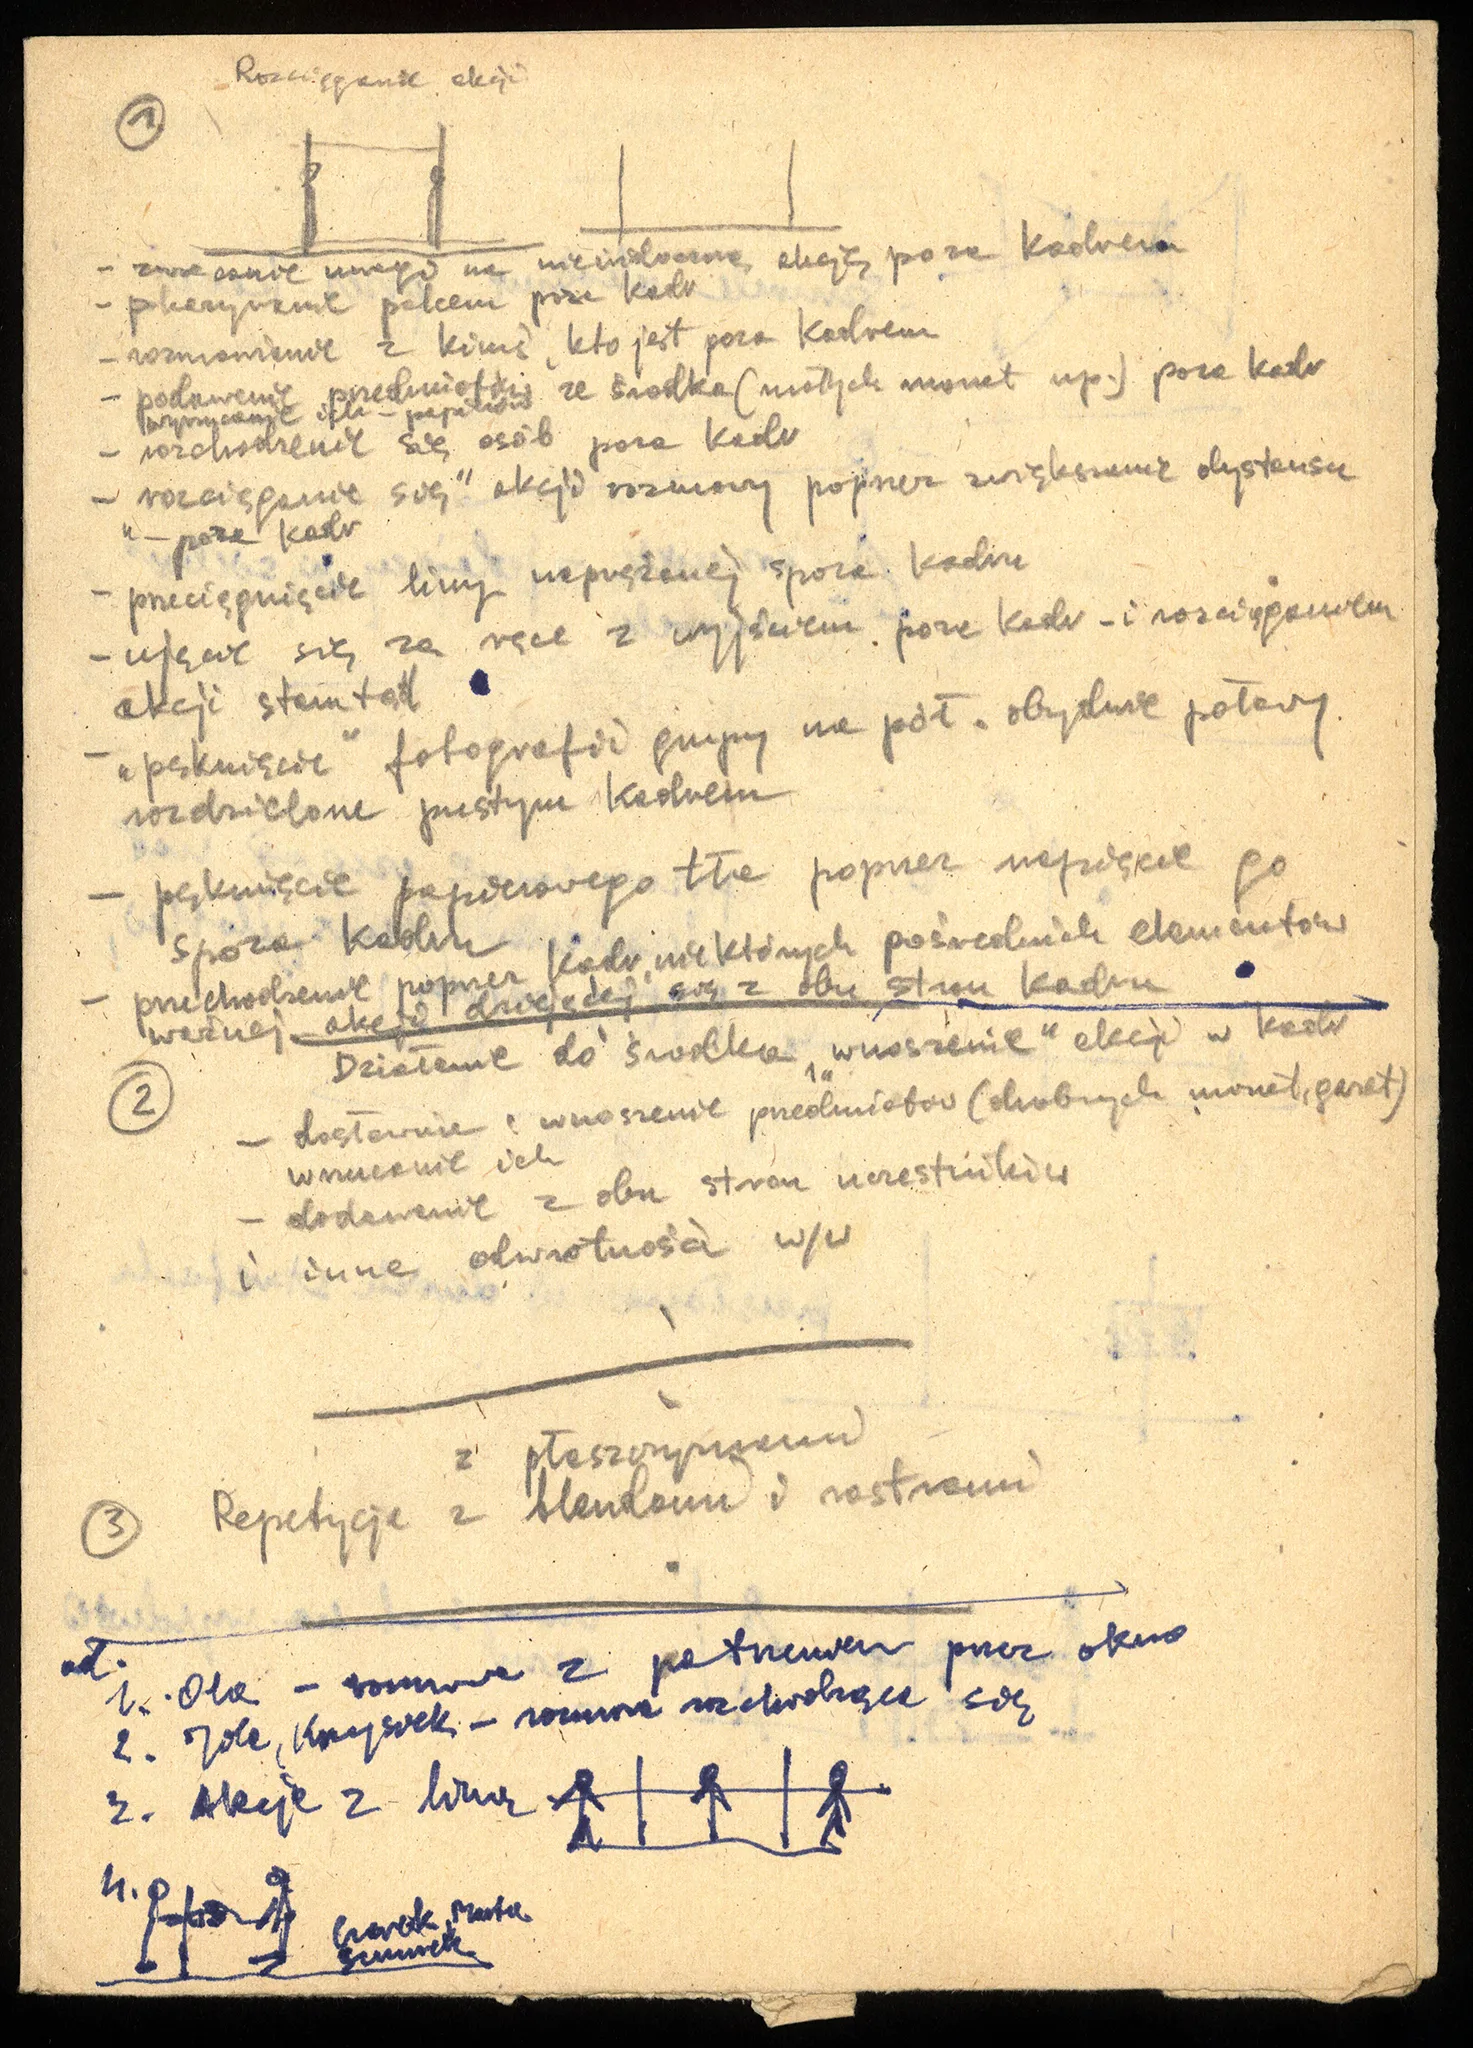 Rozciąganie akcji
1
- zwracanie uwagi na niewidoczną akcję poza Kadrem
- pokazywanie palcem poza Kadr
- rozmawianie z kimś, kto jest poza Kadrem
- podawanie przedmiotów ze środka (małych monet np.) poza kadr
wyrzucanie ich - papierów
- rozchodzenie się osób poza Kadr
- "rozciąganie się" akcji rozmowy poprzez zwiększanie dystansu
" - poza Kadr
- przeciągnięcie liny naprężonej spoza Kadru
- ujęcie się za ręce z wyjściem poza Kadr - i rozciąganiem
akcji stamtąd
- "pęknięcie" fotografii grupy na pół. obydwie połowy
rozdzielone pustym Kadrem
- pęknięcie papierowego tła poprzez napięcie go
spoza Kadru
- przechodzenie poprzez Kadr, niektórych pośrednich elementów
ważnej akcji dziejącej się z obu stron Kadru
Działanie do środka, "wnoszenie" akcji w Kadr
2
- dostawanie i wnoszenie przedmiotów (drobnych monet, gazet)
wrzucanie ich
- dodawanie z obu stron uczestników
i inne odwrotności w/w
z płaszczyznami
3 Repetycje z blendami i rastrami
ad.
1. Ola - rozmowa z patrzeniem przez okno
2. Jola, Krzysiek - rozmowa rozchodząca się
3. Akcje z liną
4.